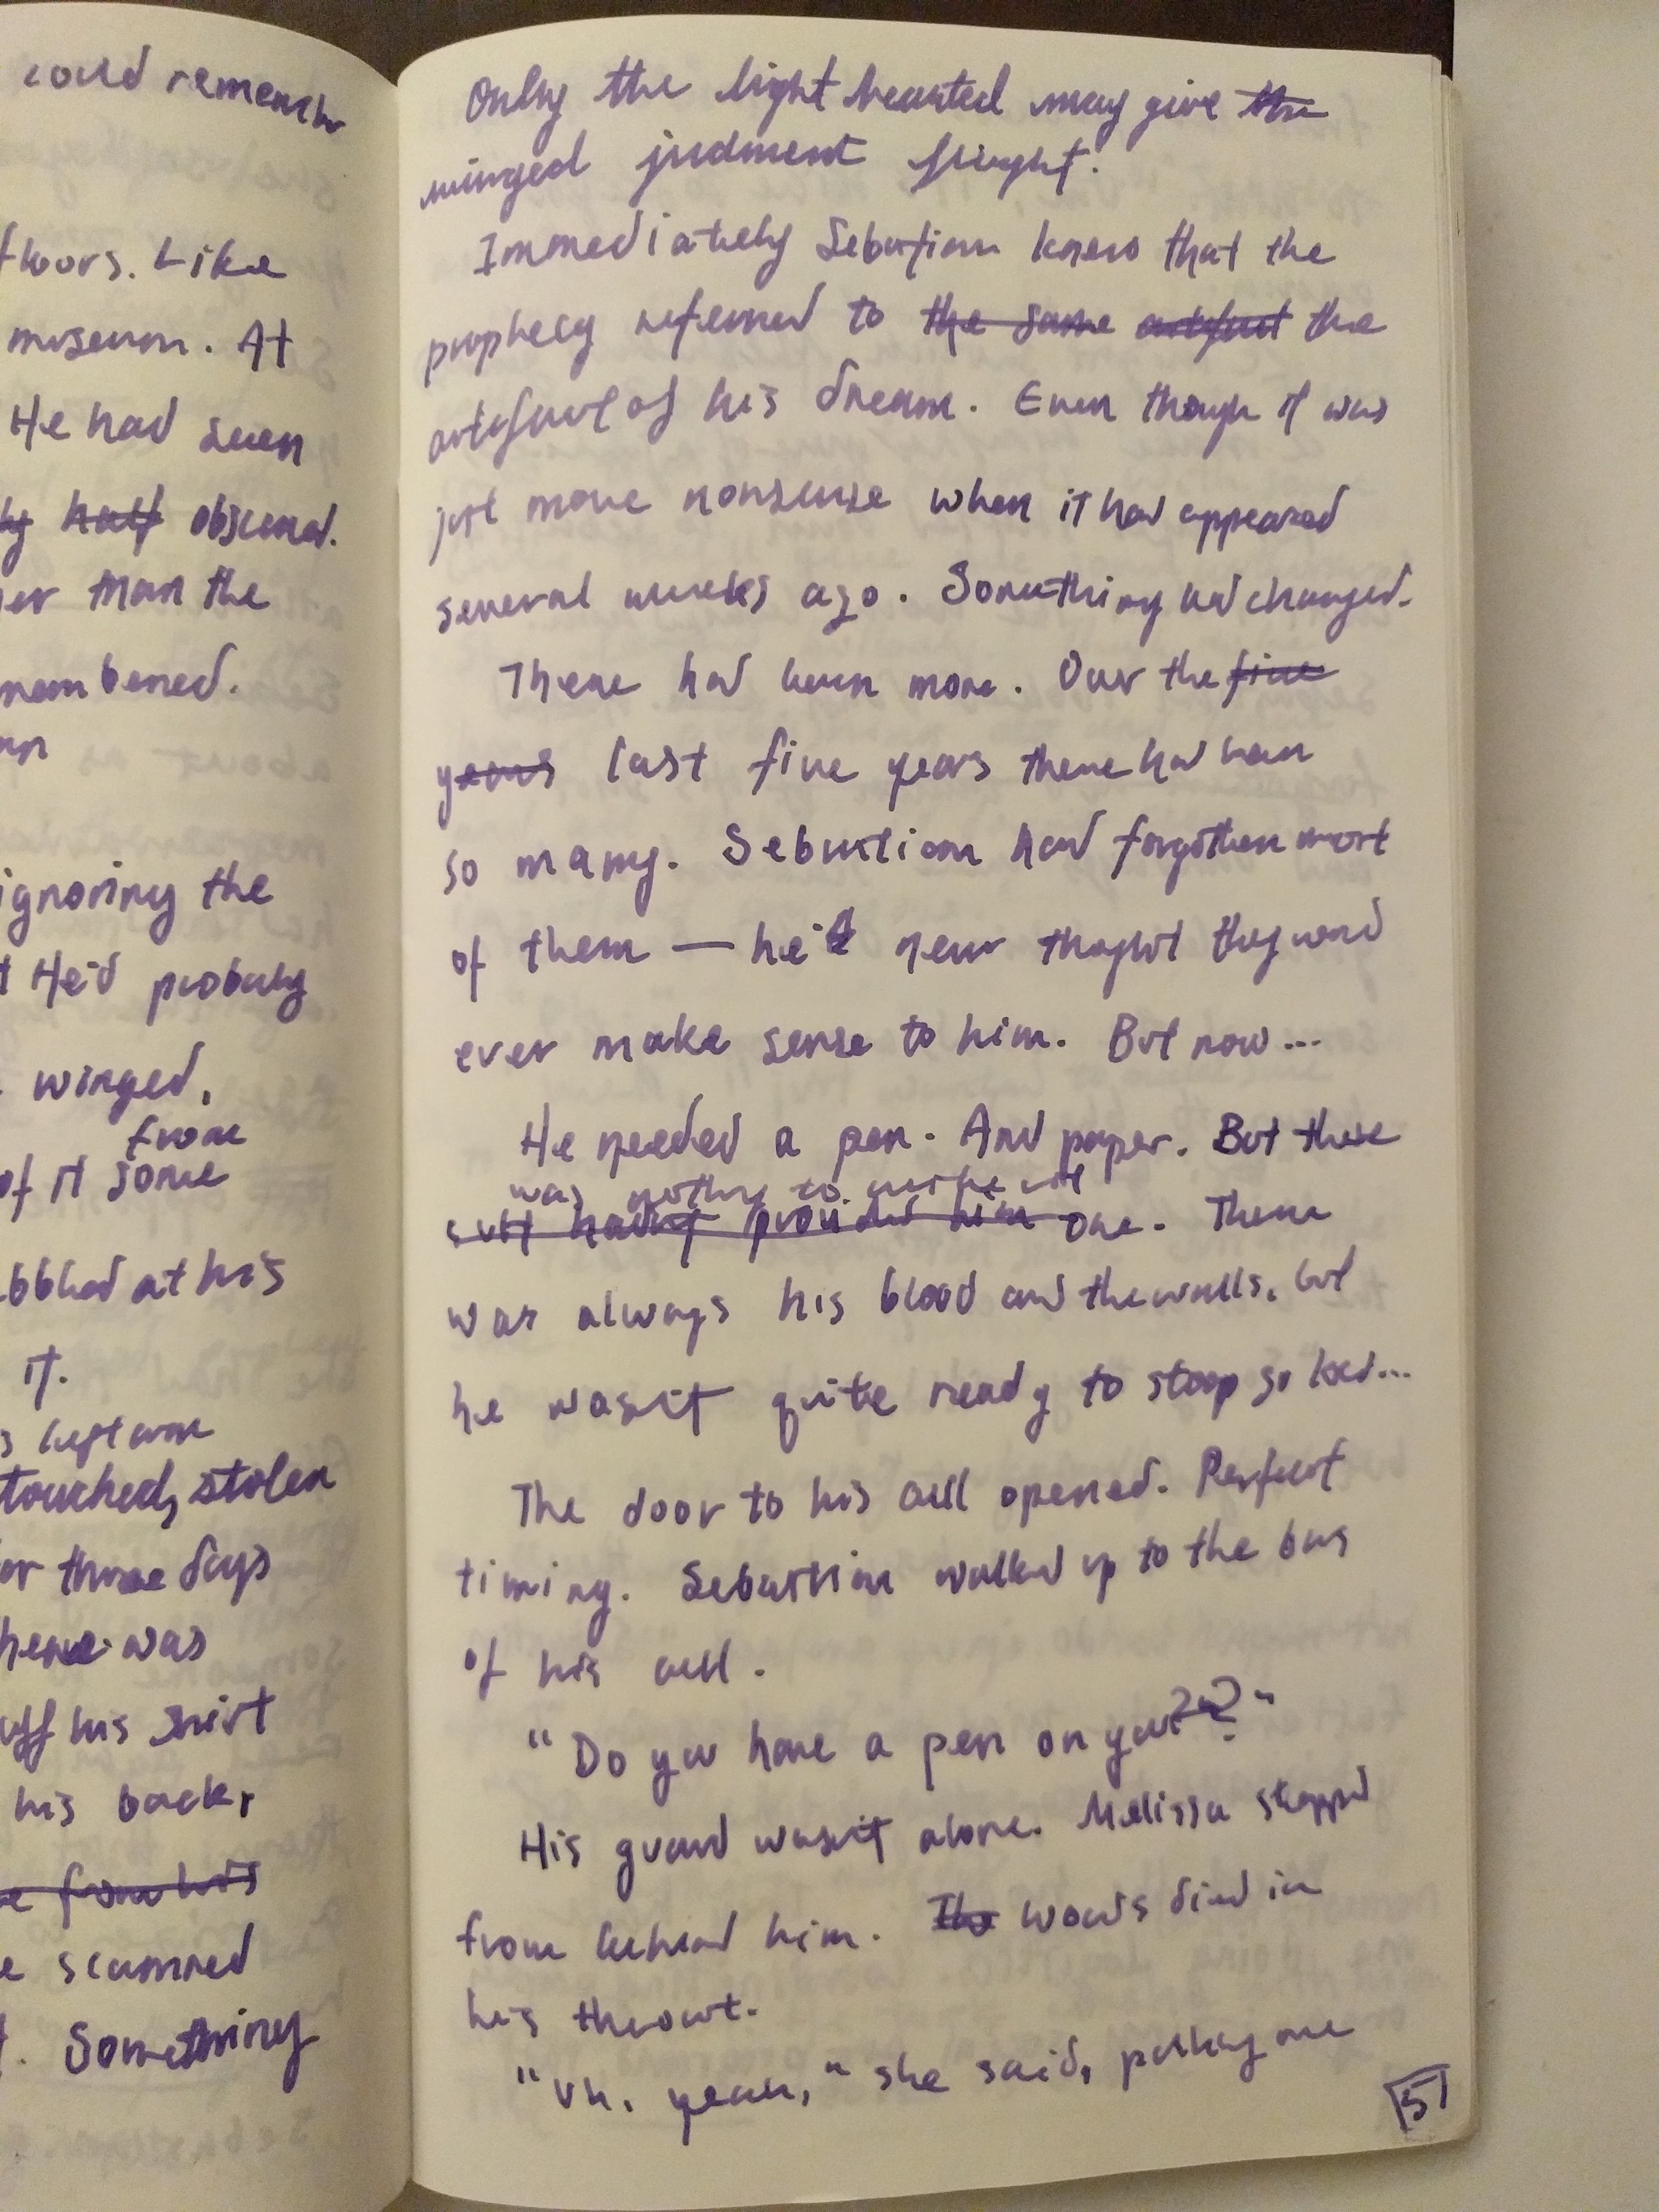 could remember
floors. Like
museum. At
He had seen
half obscured.
than the
membered.
ignoring the
He'd probably
winged,
from
of it some
at his
it.
left arm
touched, stolen
or three days
here was
off his shirt
his back,
e from his
e scanned
Something
Only the light hearted may give the
winged judment flight.
Immediately Sebastian knew that the
prophecy referred to the same artefact the
artefact of his dream. Even though it was
just more nonsense when it had appeared
several weeks ago. Something had changed.
There had been more. Over the five
years last five years there had been
so many. Sebastian had forgotten most
of them — he'd never thought they would
ever make sense to him. But now...
He needed a pen. And paper. But there
was nothing to write with
cult hadn't provided him one. There
was always his blood and the walls, but
he wasn't quite ready to stoop so low...
The door to his cell opened. Perfect
timing. Sebastian walked up to the bars
of his cell.
"Do you have a pen on you?"
His guard wasn't alone. Melissa stepped
from behind him. The words died in
his throat.
"Uh, yeah," she said, pulling one
51